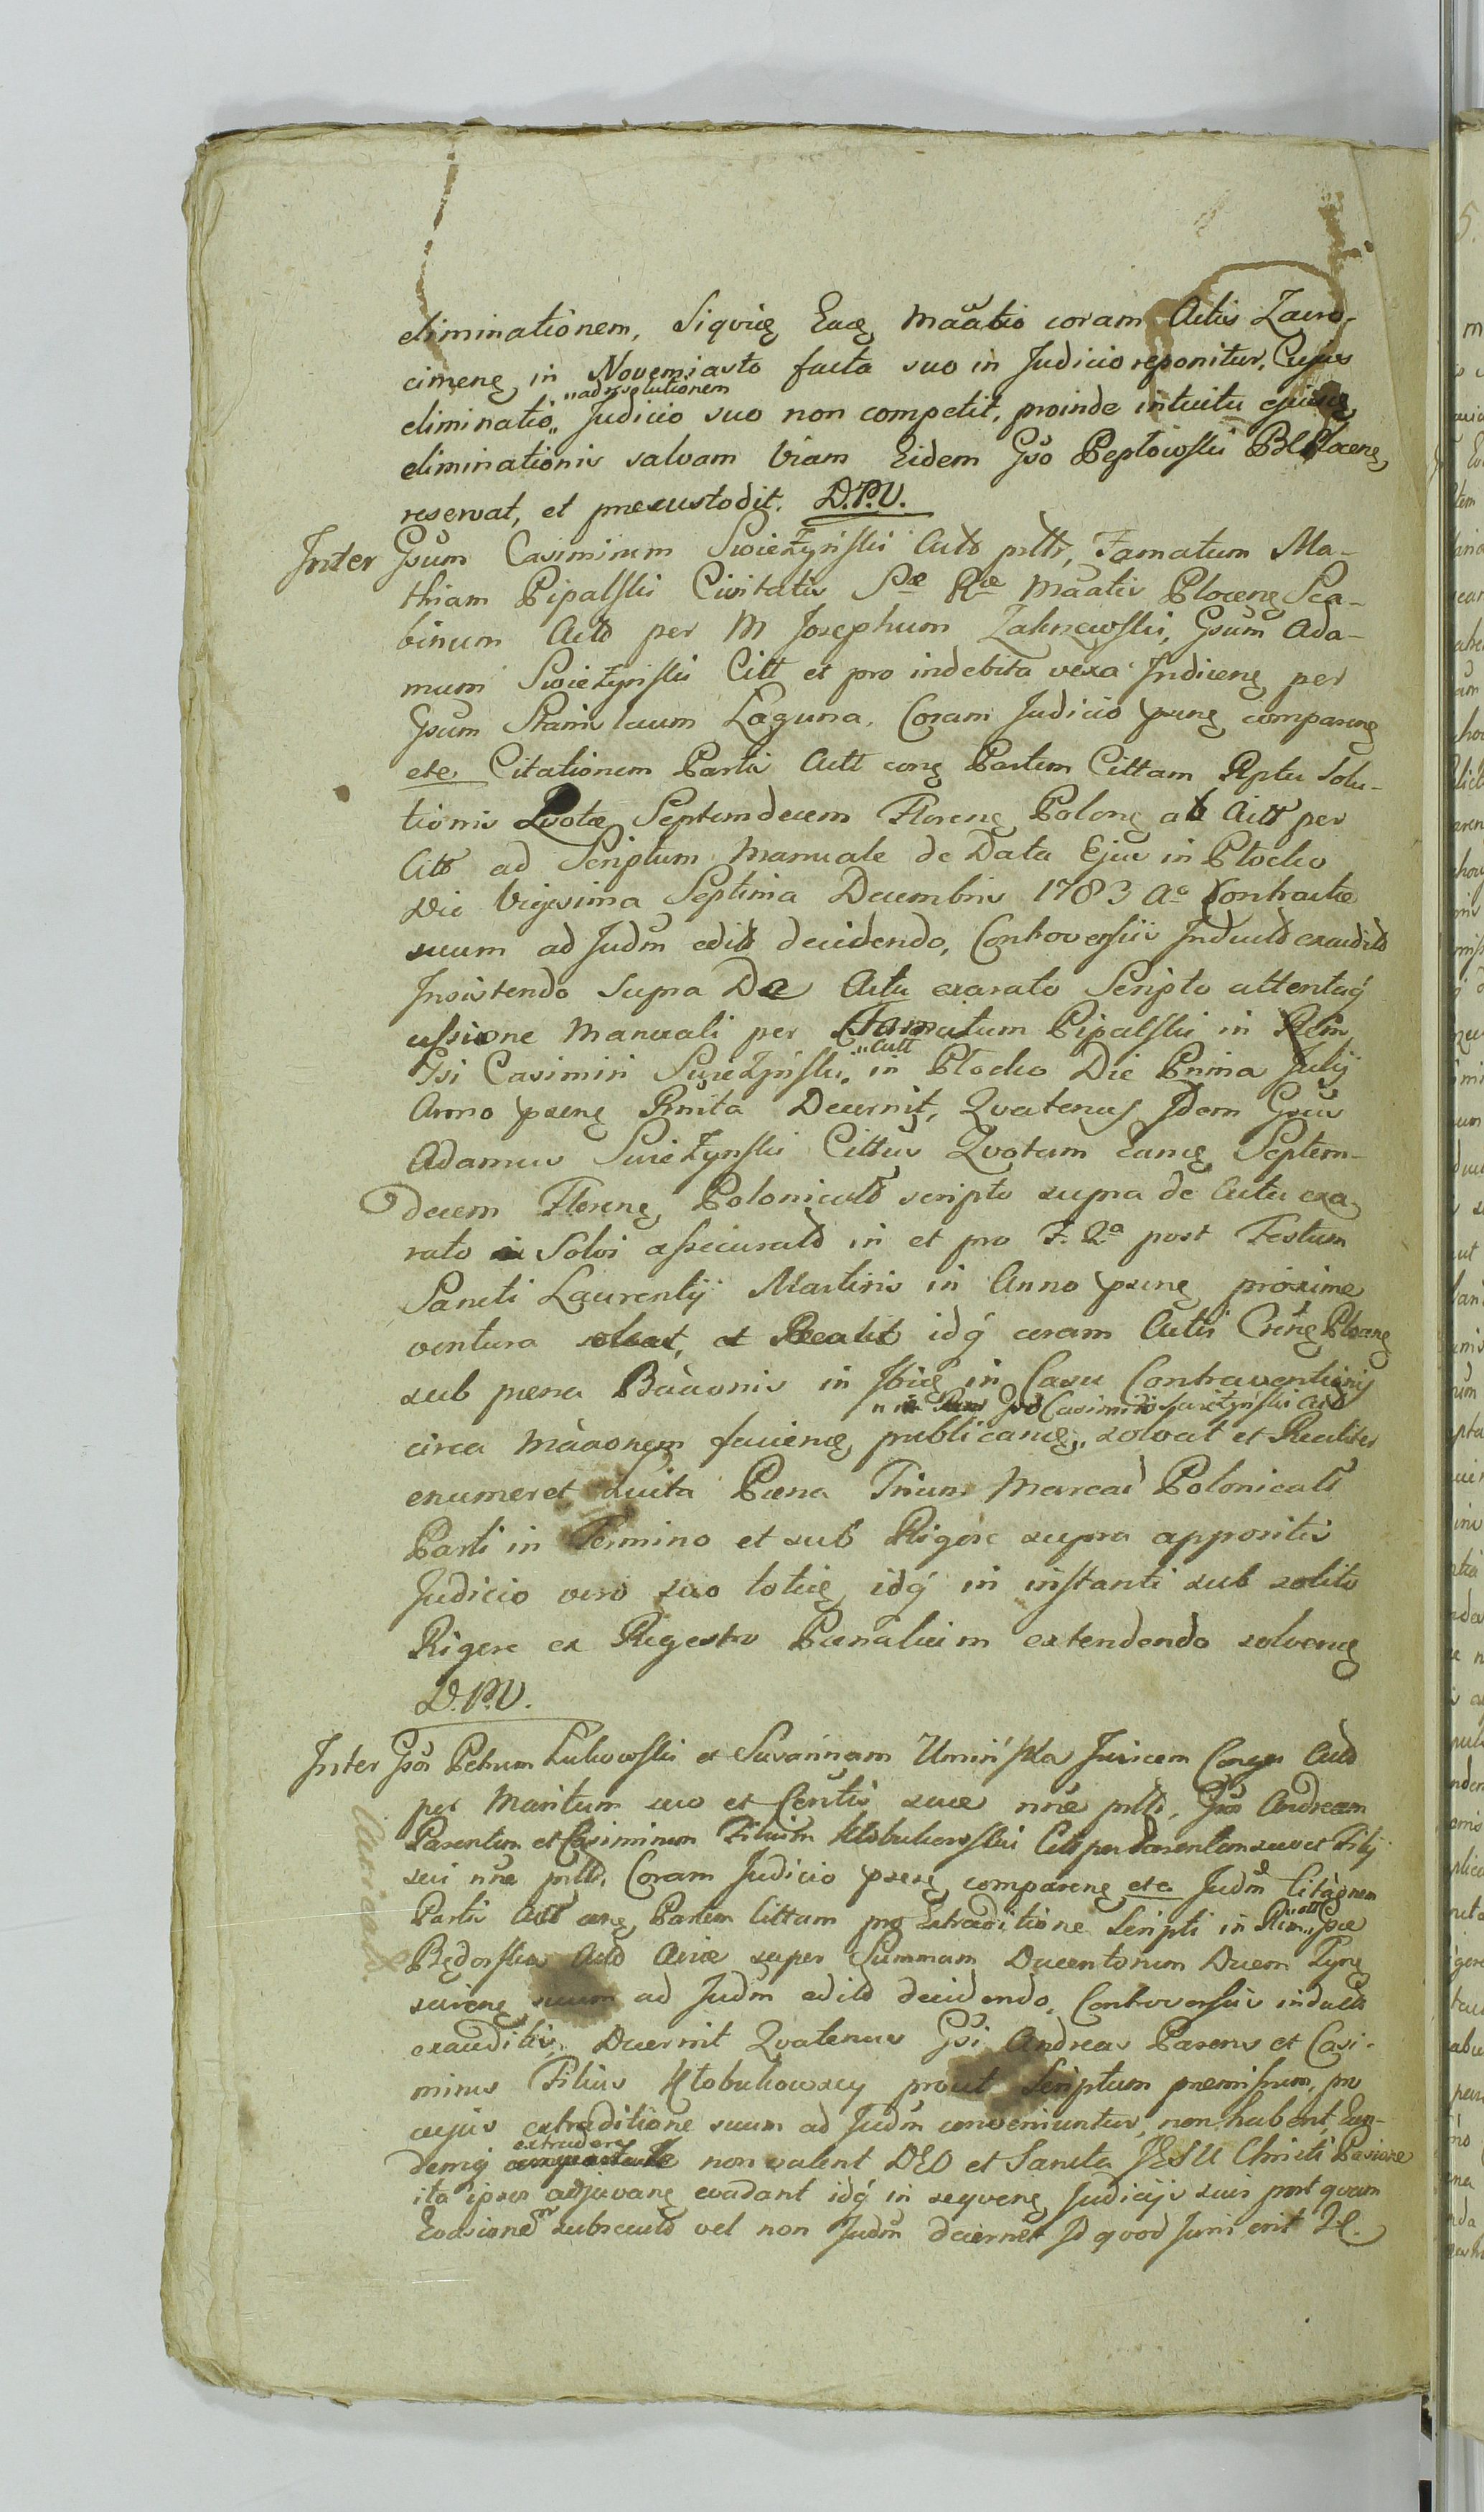 eliminationem, siqvidẽ Eadẽ Maãtio coram Actis Zacro-
cimenẽ in Novemiasto facta suo in Judicio reponitur, Cujus
eliminatio „ad resolutionem„ Judicio suo non competit, proinde intuitu ejusdẽ
eliminationis salvam viam Eidem Gso Peptowski Plocenẽ
reservat, et præcustodit. D.P.V.
Inter Gsum Casimirum Swieżyński Actõ ptt, Famatum Ma-
thiam Pipalski Civitatis Sæ Ræ Maãtis Plocenẽ Sca-
binum Actõ per M Josephum Zahrzewski, Gsum Ada-
mum Swieżyński Citt et pro indebita vexa Indicenẽ per
Gsum Stanislaum Łaguna. Coram Judicio præsenẽ comparenẽ
etc Citationem Partis Actt conẽ Partem Cittam Rptu Solu-
tionis Qvotæ Septemdecem Florenẽ Polonẽ ab Actt per
Citt ad Scriptum Manuale de Data Ejus in Płocko
Die Vigesima Septima Decembris 1783 Aº Contractæ
suum ad Judm edit decidendo, Controversiis Inductõ exauditõ
Insistendo supra De Actu exarato Scripto attentaq́
cessione Manuali per Famatum Pipalski in Rem
Gsi Casimiri Swieżyński „Actt„ in Płocko Die Prima Julij
Anno præsenẽ Rnita Decernit, Qvatenus Idem Gsus
Adamus Swieżynski Cittus Qvotam Eamẽ Septem-
decem Florenẽ Polonicatõ scripto supra de Actu exa-
rato Solvi assecuratõ in et pro F. 2ª post Festum
Sancti Laurentij Martiris in Anno præsenẽ proxime
ventura solvat, et Realit idq́ coram Actis Crenẽ Plocenẽ
sub pœna Baãonis in Ibidẽ in Casu Contraventionis
„Gso Casimiro Swieżyński Actõ
circa Maãonem faciendẽ publicandẽ„ solvat et Realiter
enumeret Luita Pœna Trium Marcar Polonicalt
Parti in Termino et sub Rigore supra appositis
Judicio vero suo totidẽ idq́ in instanti sub solito
Rigore ex Regestro Pœnalium extendendo solvendẽ
D.P.V.
Inter Gsos Petrum Lukowski et Susannam Umińska Juricem Conges Actõ
per Maritum suo et Consortis suæ nne ptt, Gsos Andream
Parentem et Casimirum Filium Kłobukowski Citt per Parentem suo et Filij
sui nne ptt. Coram Judicio præsenẽ comparenẽ etc Judm Citaõnem
Partis Actt conẽ Partem Cittam pro Extraditione Scripti in Rem „ott„ Gsæ
Będorska Actõ Aviæ super Summam Ducentorum Ducem Tynẽ
servienẽ suum ad Judm editõ decidendo, Controversiis inductõ
exauditis, Decernit Qvatenus Gsi Andreas Parens et Casi-
mirus Filius Kłobukowscy prout Scriptum præmissum, pro
cujus extraditione suum ad Judm conveniuntur, non habent, Eun-
demq́ extradere non valent DEO et Sancta JESU Christi Passione
ita ipsos adjuvanẽ evadant idq́ in seqvenẽ Judicijs suis post qvam
Evasionem subsecutõ vel non Judm decernet Id qvod Juris erit Lc.